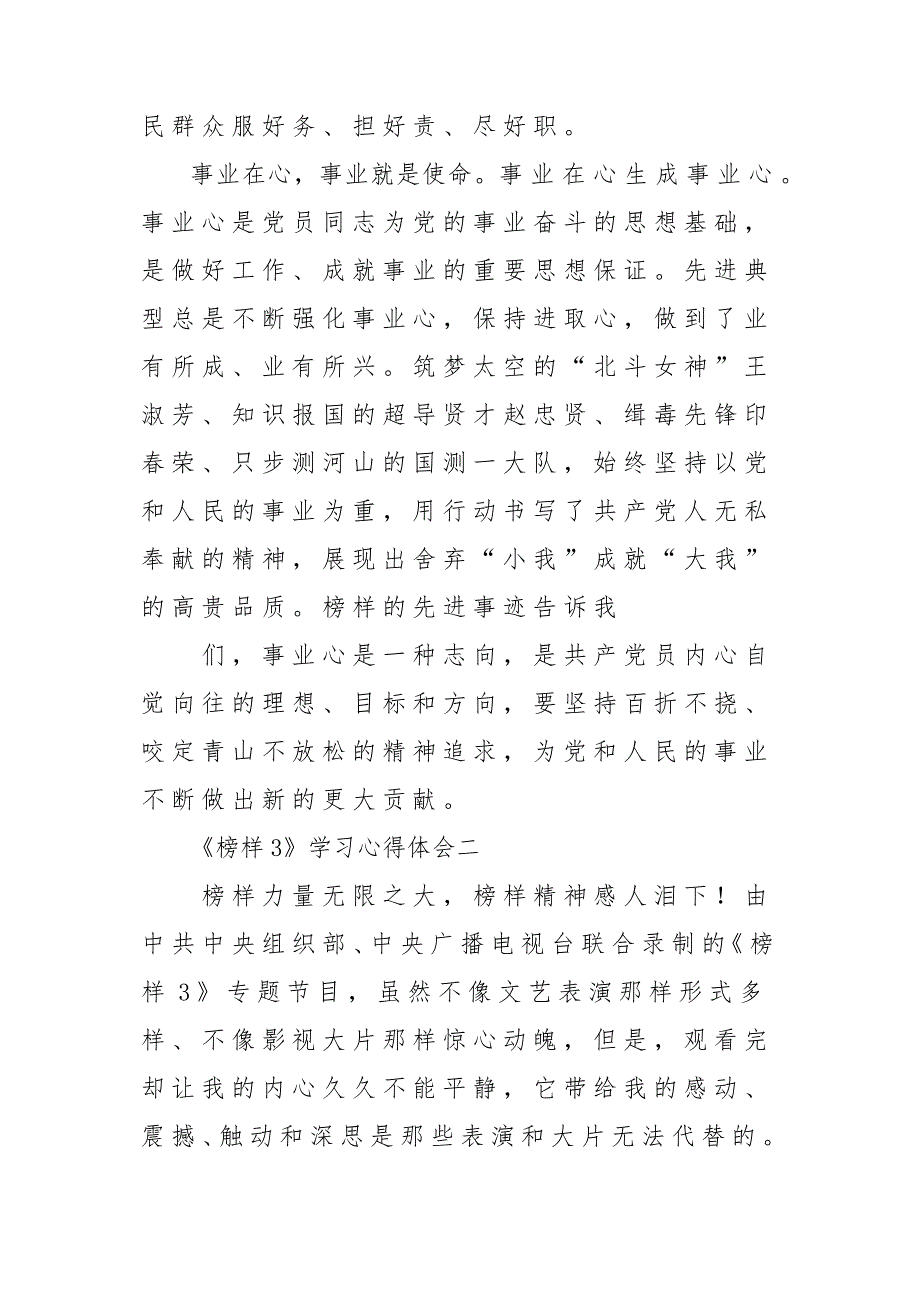 民群众服好务、担好责、尽好职。
事业在心，事业就是使命。事业在心生成事业心。
事业心是党员同志为党的事业奋斗的思想基础，
是做好工作、成就事业的重要思想保证。先进典
型总是不断强化事业心，保持进取心，做到了业
有所成、业有所兴。筑梦太空的“北斗女神”王
淑芳、知识报国的超导贤才赵忠贤、缉毒先锋印
春荣、只步测河山的国测一大队，始终坚持以党
和人民的事业为重，用行动书写了共产党人无私
奉献的精神，展现出舍弃“小我”成就“大我”
的高贵品质。榜样的先进事迹告诉我
们，事业心是一种志向，是共产党员内心自
觉向往的理想、目标和方向，要坚持百折不挠、
咬定青山不放松的精神追求，为党和人民的事业
不断做出新的更大贡献。
《榜样3》学习心得体会二
榜样力量无限之大，榜样精神感人泪下！由
中共中央组织部、中央广播电视台联合录制的《榜
样3》专题节目，虽然不像文艺表演那样形式多
样、不像影视大片那样惊心动魄，但是，观看完
却让我的内心久久不能平静，它带给我的感动、
震撼、触动和深思是那些表演和大片无法代替的。